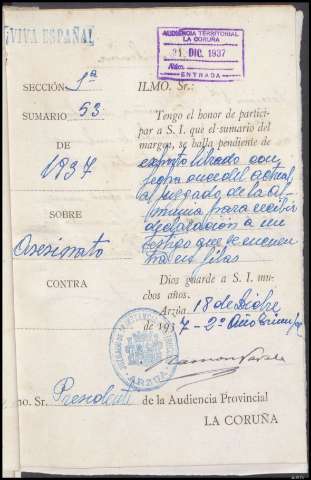 ¡VIVA ESPAÑA!
AUDIENCIA TERRITORIAL
LA CORUÑA
21. DIC. 1937
Núm.
ENTRADA
SECCIÓN 1ª
SUMARIO 53
DE
1937
SOBRE
Asesinato
CONTRA
ILMO. Sr.:
Tengo el honor de partici-
par a S. I. que el sumario del
margen, se halla pendiente de
exhorto librado con
fecha once del actual
al juzgado de
para recibir
declaración a un
testigo que se encuen
tra en filas
Dios guarde a S. I. mu-
chos años.
Arzúa 18 de Dicbre
de 1937 - 2º Año triunfal
ARZÚA
Ramon
mo. Sr. Presidente de la Audiencia Provincial
LA CORUÑA